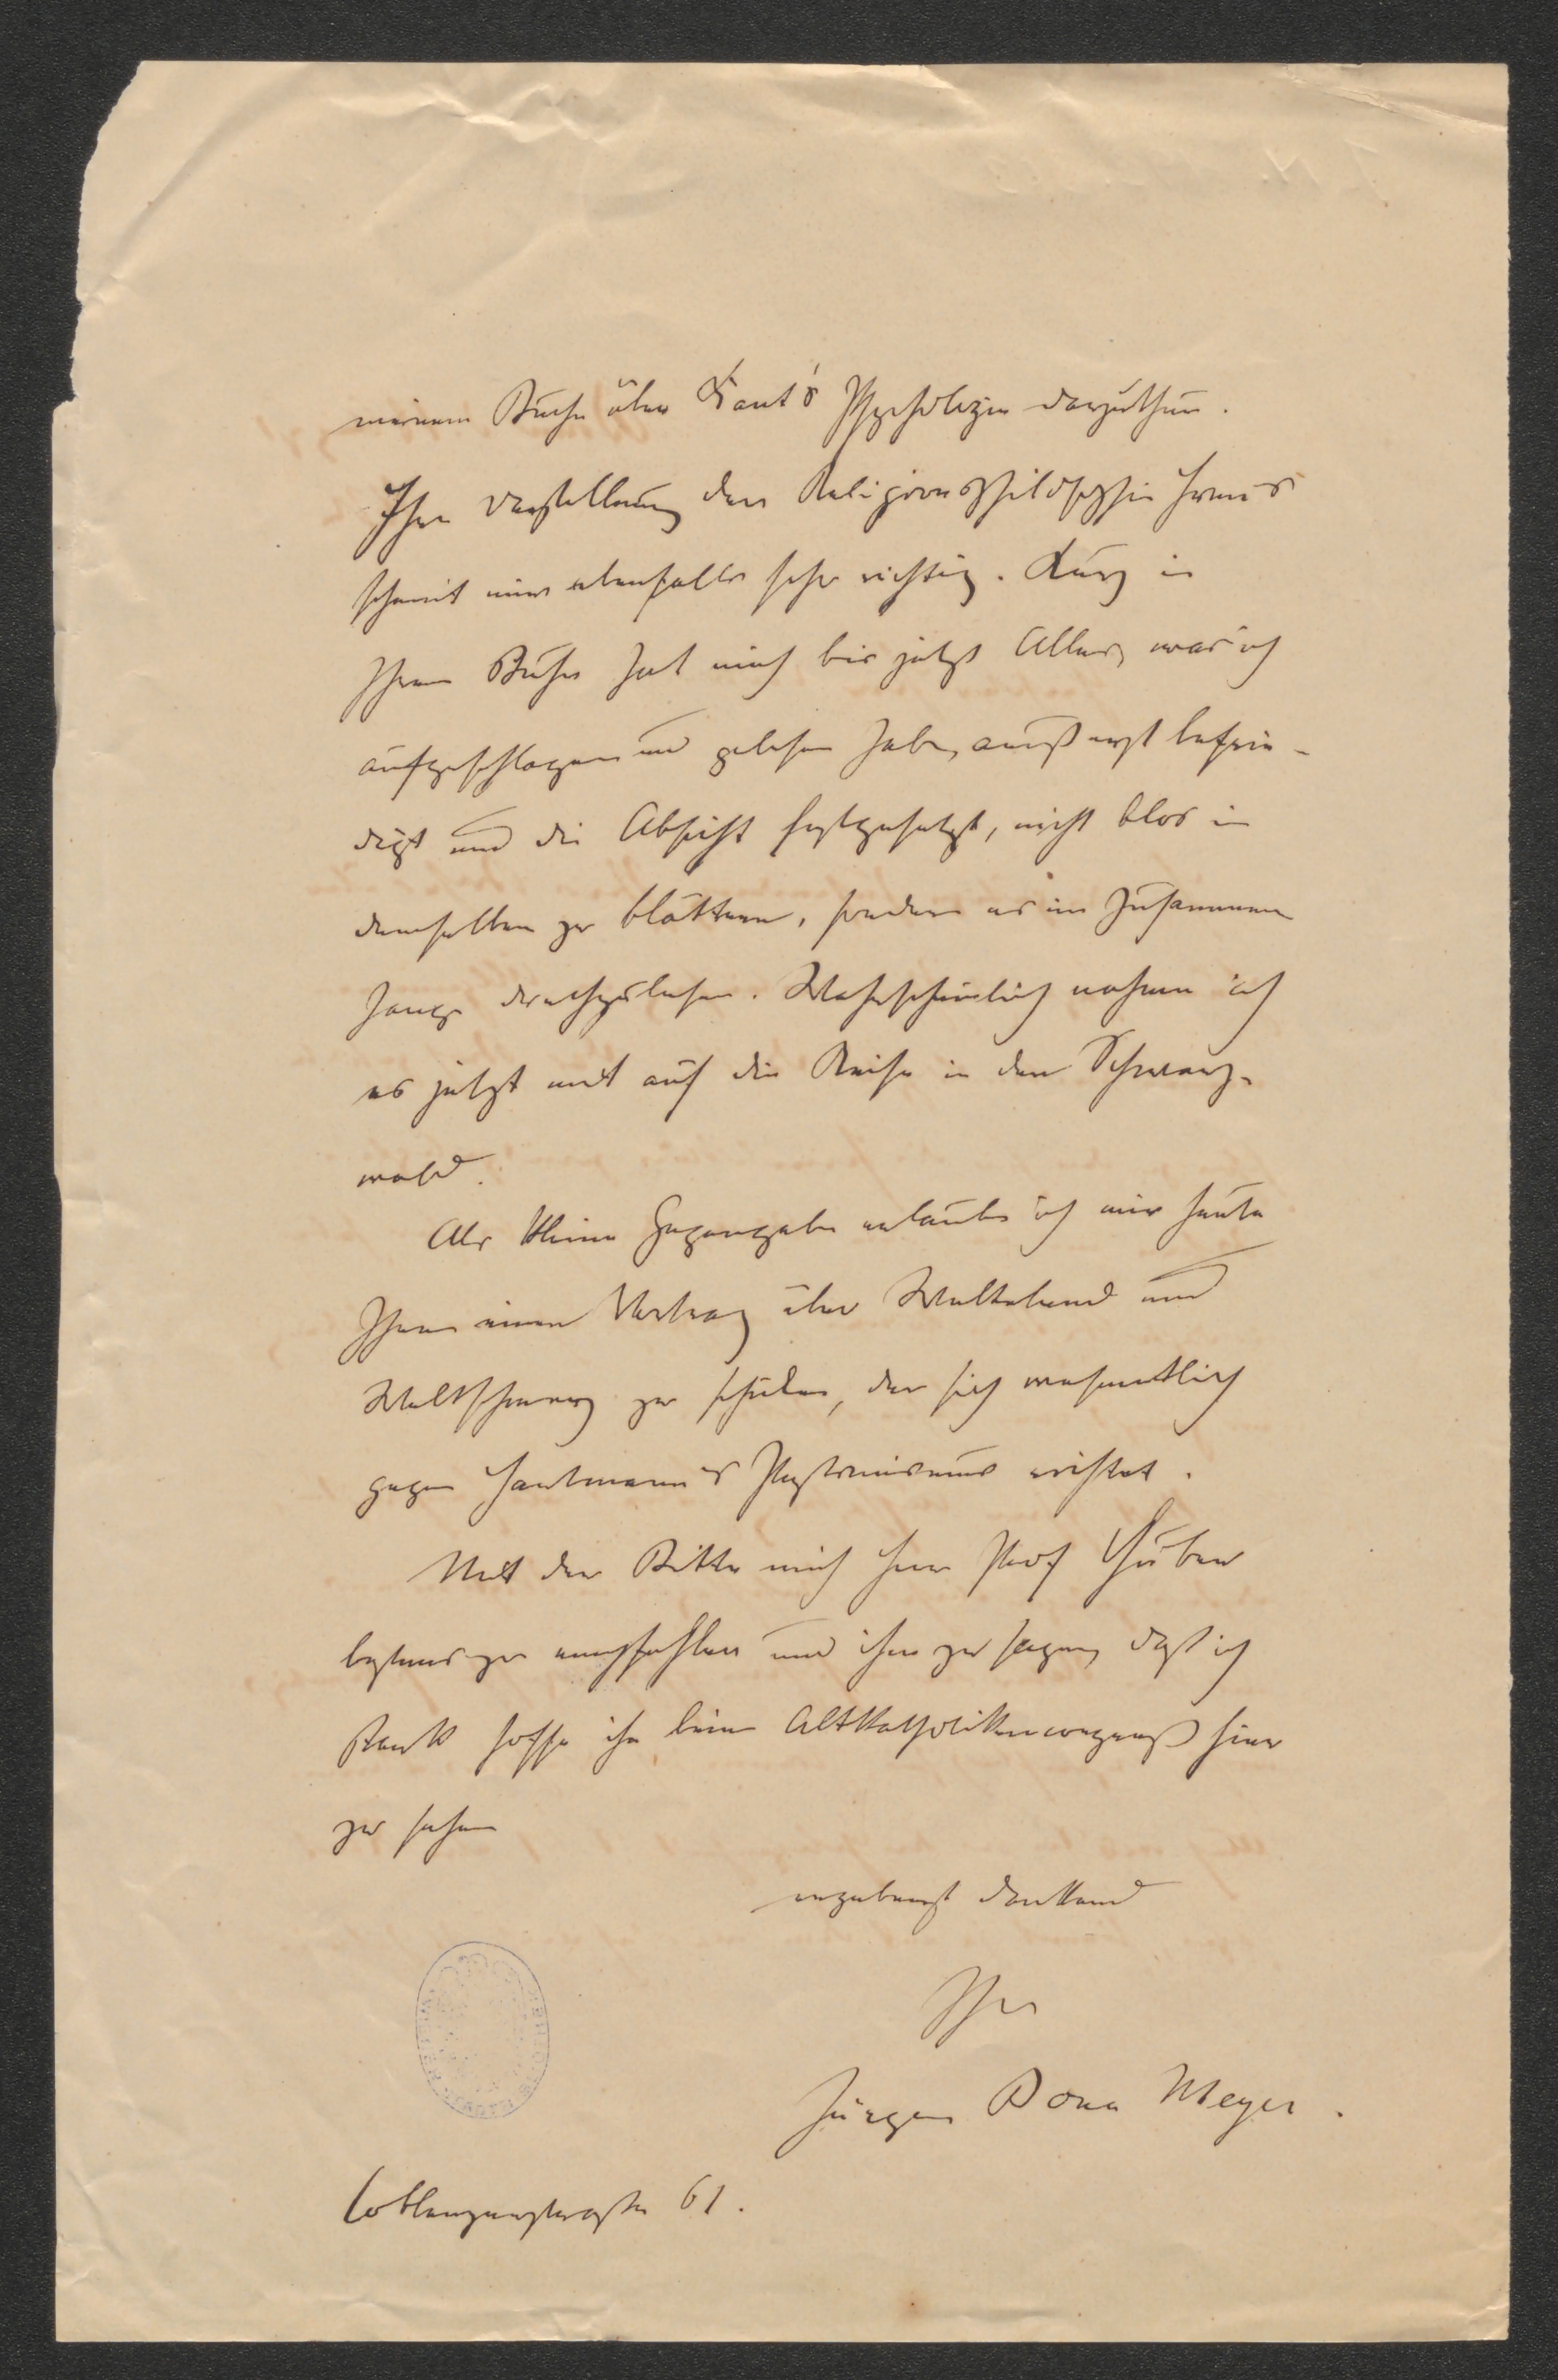 meinem Buche über Kant's Psychologie darzuthun.
Ihre Darstellung der Religionsphilosophie Hume's
scheint mir ebenfalls sehr richtig. Kurz in
Ihrem Buche hat mich bis jetzt Alles, was ich
aufgeschlagen und gelesen habe, äußerst befrie-
digt und die Absicht festgesetzt, nicht blos in
demselben zu blättern, sondern es im Zusammen
hange durchzulesen. Wahrscheinlich nehme ich
es jetzt mit auf die Reise in den Schwarz-
wald.
Als kleine Gegengabe erlaube ich mir heute
Ihnen einen Vortrag über Weltelend und
Weltschmerz zu schicken, der sich wesentlich
gegen Hartmann's Pessimismus richtet.
Mit der Bitte mich Herr Prof Huber
bestens zu empfehlen und ihm zu sagen, daß ich
stark hoffe ihn beim Altkatholikencongreß hier
zu sehen
ergebenst dankend
Ihr
Jürgen Bona Meyer.
Coblenzerstraße 61.